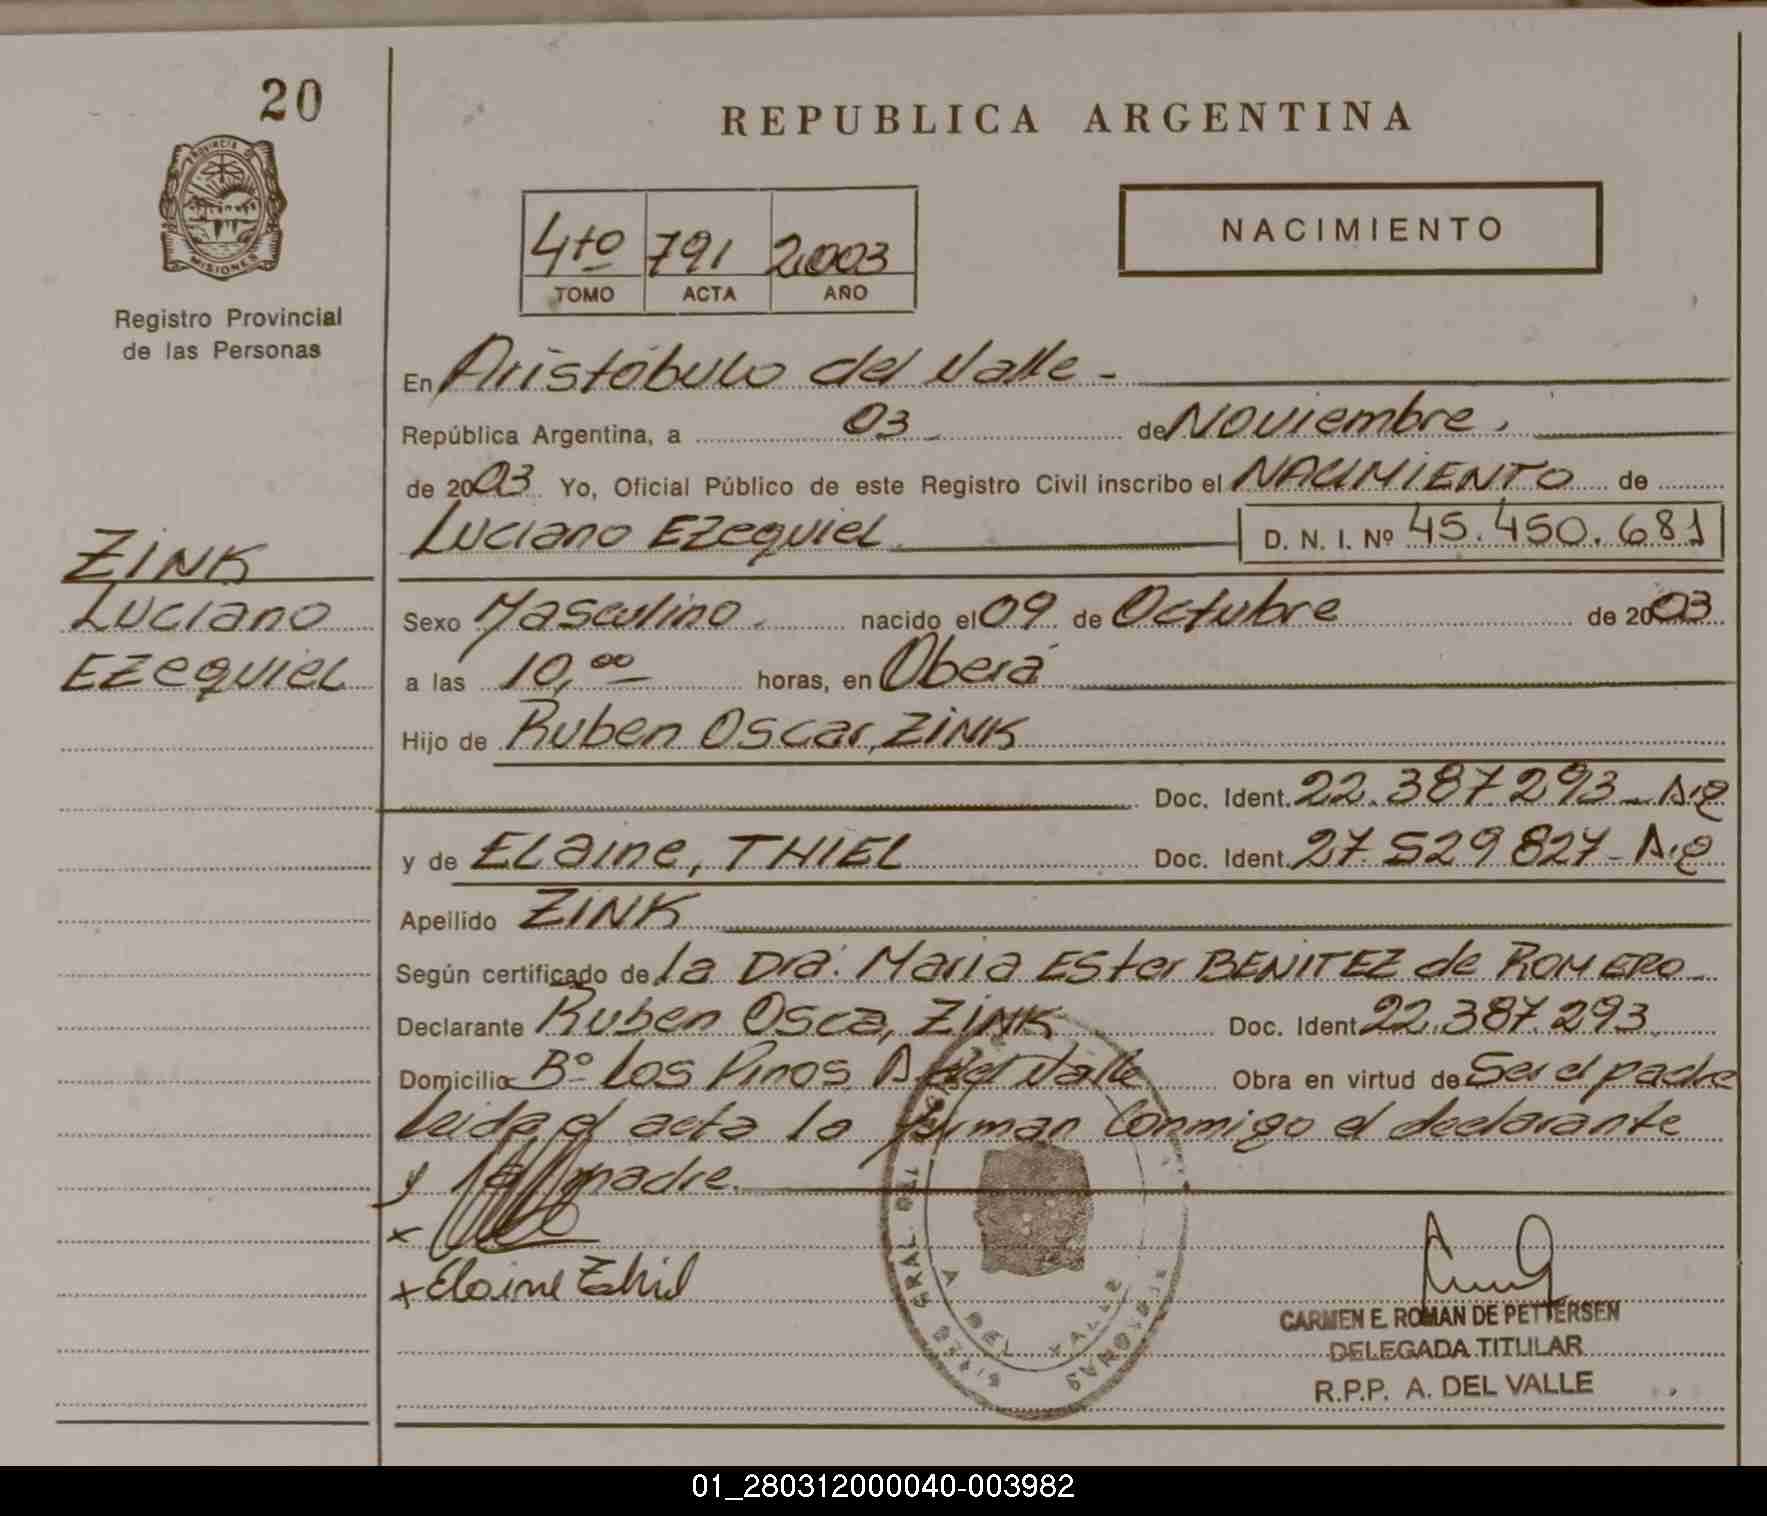 20
PROVINCIA DE
MISIONES
Registro Provincial
de las Personas
ZINK
Luciano
Ezequiel
REPUBLICA ARGENTINA
4to 791 2.003
TOMO ACTA AÑO
NACIMIENTO
En Aristóbulo del Valle -
República Argentina, a 03 de Noviembre.
de 2003 Yo, Oficial Público de este Registro Civil inscribo el NACIMIENTO de
Luciano Ezequiel D. N. I. Nº 45.450.681
Sexo Masculino. nacido el 09 de Octubre de 2003
a las 10,00 horas, en Oberá
Hijo de Ruben Oscar, ZINK
Doc. Ident. 22.387.293 - Arg
y de Elaine, THIEL Doc. Ident. 27.529.827 - Arg
Apellido ZINK
Según certificado de la Dra. Maria Ester BENITEZ de ROMERO
Declarante Ruben Osca, ZINK Doc. Ident. 22.387.293
Domicilio Bº Los Pinos A. del Valle Obra en virtud de Ser el padre
Leida el acta la firman conmigo el declarante
y la madre.
x
x Elaine
GRAL. DEL
A. DEL VALLE
CARMEN E. ROMAN DE PETTERSEN
DELEGADA TITULAR
R.P.P. A. DEL VALLE
01_280312000040-003982